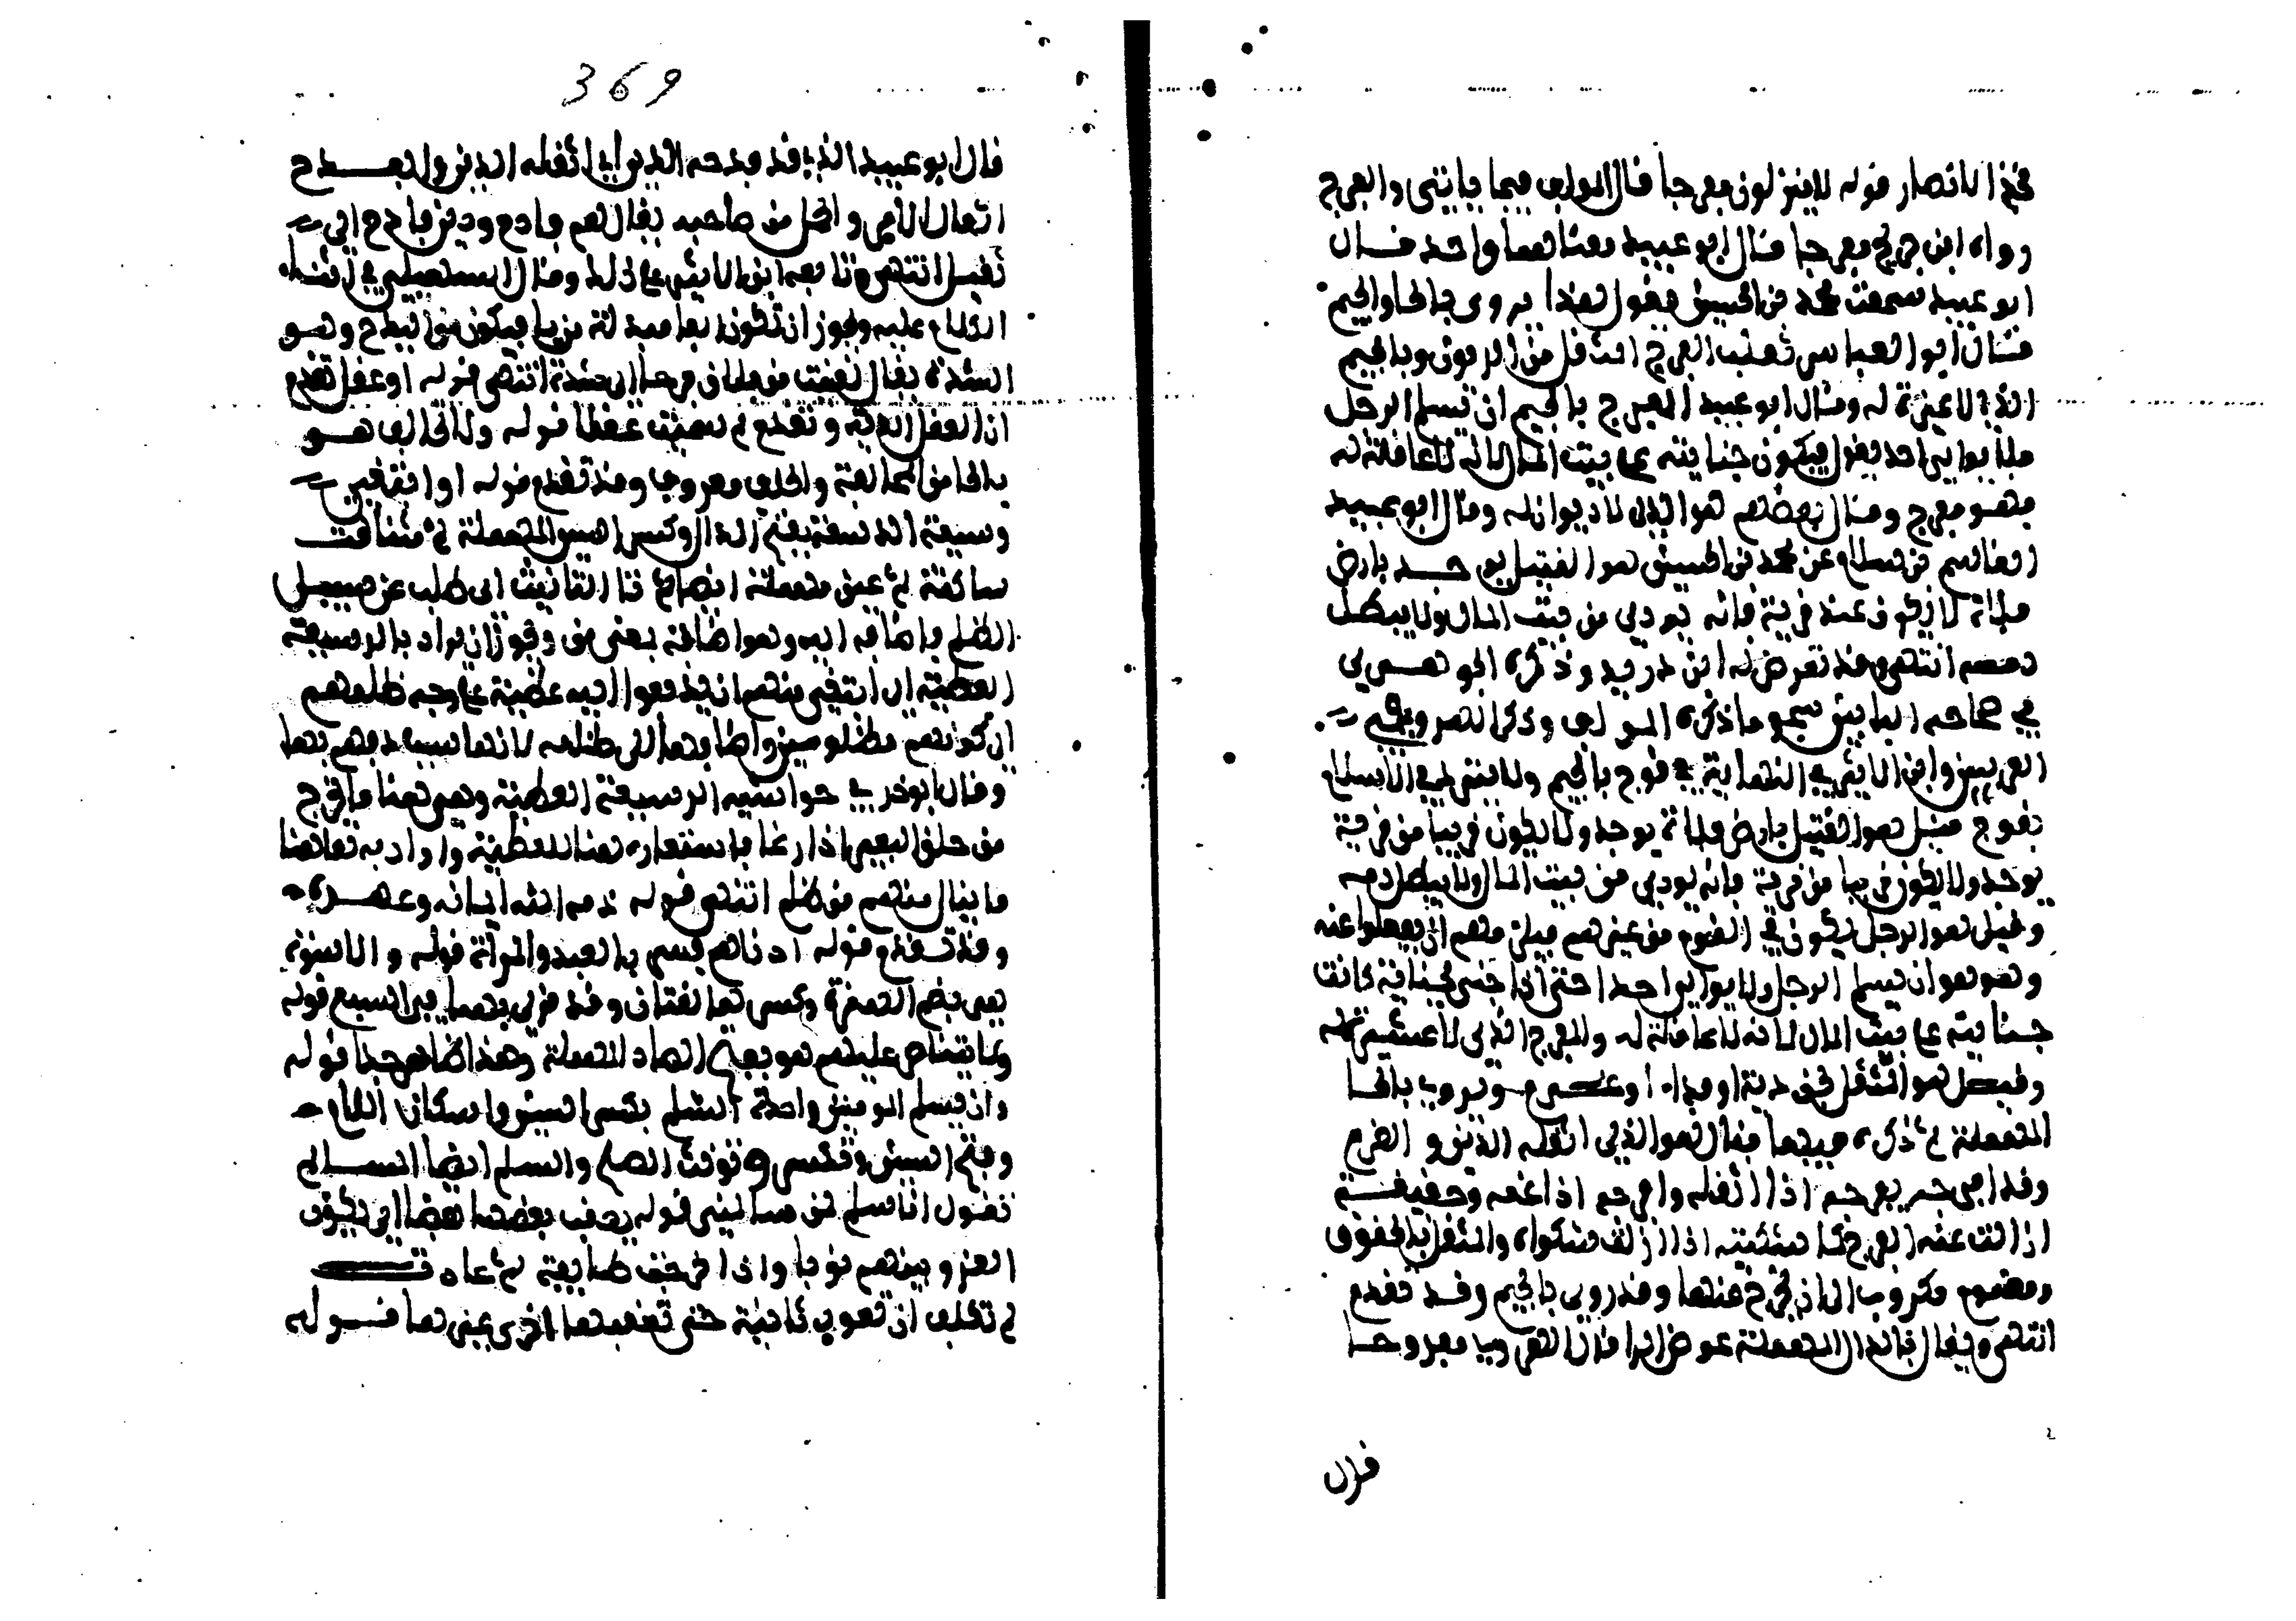 فخذ الانصار قوله لا يتركون مفرجا قال المولف فيما ياتي والمفرج
رواه ابن جريج مفرجا قال ابو عبيد معناهما واحد قال
ابو عبيد سمعت محمد بن الحسين يقول هذا يروى بالحا والجيم
قال ابو العباس ثعلب المفرج المثقل من الديون وبالجيم
الذي لا عشيرة له وقال ابو عبيد المفرج بالجيم ان يسلم الرجل
فلا يوالي احد يقول فيكون جنايته على بيت المال لانه لا عاقلة له
فهو مفرج وقال بعضهم هو الذي لا ديوان له وقال ابو عبيد
القاسم بن سلام عن محمد بن الحسين هو القتيل يوجد بارض
فلاة لا يكون عند قرية فانه يودى من بيت المال ولا يبطل
دمه انتهى وقد تعرض له ابن دريد وذكره الجوهري
في صحاحه البابين بنحو ما ذكره المولف وذكر الهروي في
الغريبين وابن الاثير في النهاية في فرج بالجيم ولا يترك في الاسلام
مفرج قيل هو القتيل بارض فلاة يوجد ولا يكون قريبا من قرية
يوجد ولا يكون قريبا من قرية فانه يودى من بيت المال ولا يبطل دمه
وقيل هو الرجل يكون في القوم من غيرهم فيلزمهم ان يعقلوا عنه
وهو هو ان يسلم الرجل ولا يوالي احدا حتى اذا جنى جناية كانت
جنايته على بيت المال لانه لا عاقلة له والمفرج الذي لا عشيرة له
وقيل هو المثقل بحق دية او فداء او غرم ويروى بالحا
المهملة ثم ذكره فيهما فقال هو الذي اثقله الدين و الغرم
وقد افرحه يفرحه اذا اثقله وافرحه اذا غمه وحقيقته
ازالت عنه الفرح كما شكيته اذا ازلت شكواه والمثقل بالحقوق
مغموم مكروب الى ان يخرج عنها وقد روي بالجيم وقد تقدم
انتهى ويقال بالدال المهملة عوض الرا قال الهروي مفدوحا
قال
369
قال ابو عبيد الذي قد فدحه الدين اي اثقله الدين والفدح
اثقال الامر والحمل من صاحبه يقال لهم فادح ودين فادح اي
ثقيل انتهى وتابعه ابن الاثير على ذلك وقال السهيلي في اثناء
الكلام عليه ويجوز ان تكون الفا مبدلة من با فيكون من البرح وهو
الشدة يقال لقيت من فلان برحا اي شدة انتهى قوله او عقل تقدم
ان العقل الدية وتقدم لم سميت عقلا قوله ولا يحالف هو
بالحا من المحالفة والحلف معروف وقد تقدم قوله او ابتغى
دسيعة الدسيعة بفتح الدال وكسر السين المهملة ثم مثناة تحت
ساكنة ثم عين مهملة ايضا ثم تا التانيث اي طلب عن سبيل
الظلم فاضافه اليه وهو اضافة بمعنى من ويجوز ان يراد بالدسيعة
العطية اي ابتغى منهم ان يدفعوا اليه عطية على وجه ظلمهم
اي كونهم مظلومين واضافها الى ظلمه لانها سبب دفعهم لها
وقال ابو ذر في حواشيه الدسيعة العظيمة وهي هنا ما يخرج
من حلق البعير اذا رغا فاستعاره هنا للعطية واراد به هاهنا
ما ينال منهم من ظلم انتهى قوله ذمة الله امانه وعهده
وقد تقدم قوله ادناهم فسر بالعبد والمراة قوله والاسوة
هي بضم الهمزة وكسرها لغتان وقد قرئ بهما في السبع قوله
ولا يتناصر عليهم هو بفتح الصاد المهملة وهذا ظاهر جدا قوله
وان سلم المومنين واحدة السلم بكسر السين واسكان اللام
وبفتح السين وتكسر وتونث الصلح والسلم ايضا المسالم
تقول انا سلم لمن سالمني قوله يعقب بعضها بعضا اي يكون
الغزو بينهم نوبا واذا خرجت طايفة ثم عادت
لم تكلف ان تعود ثانية حتى تعقبها اخرى غيرها قوله